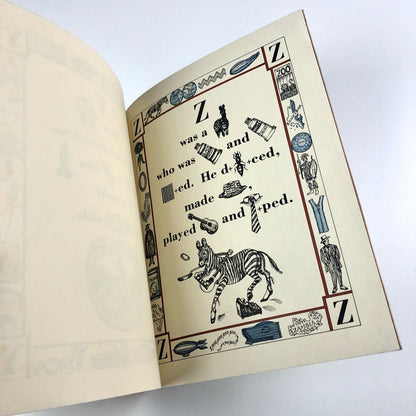 Z
ZOO
Z
was a
who was and
+ed. He d+ced,
made ,
played and +ped.
Z
Z